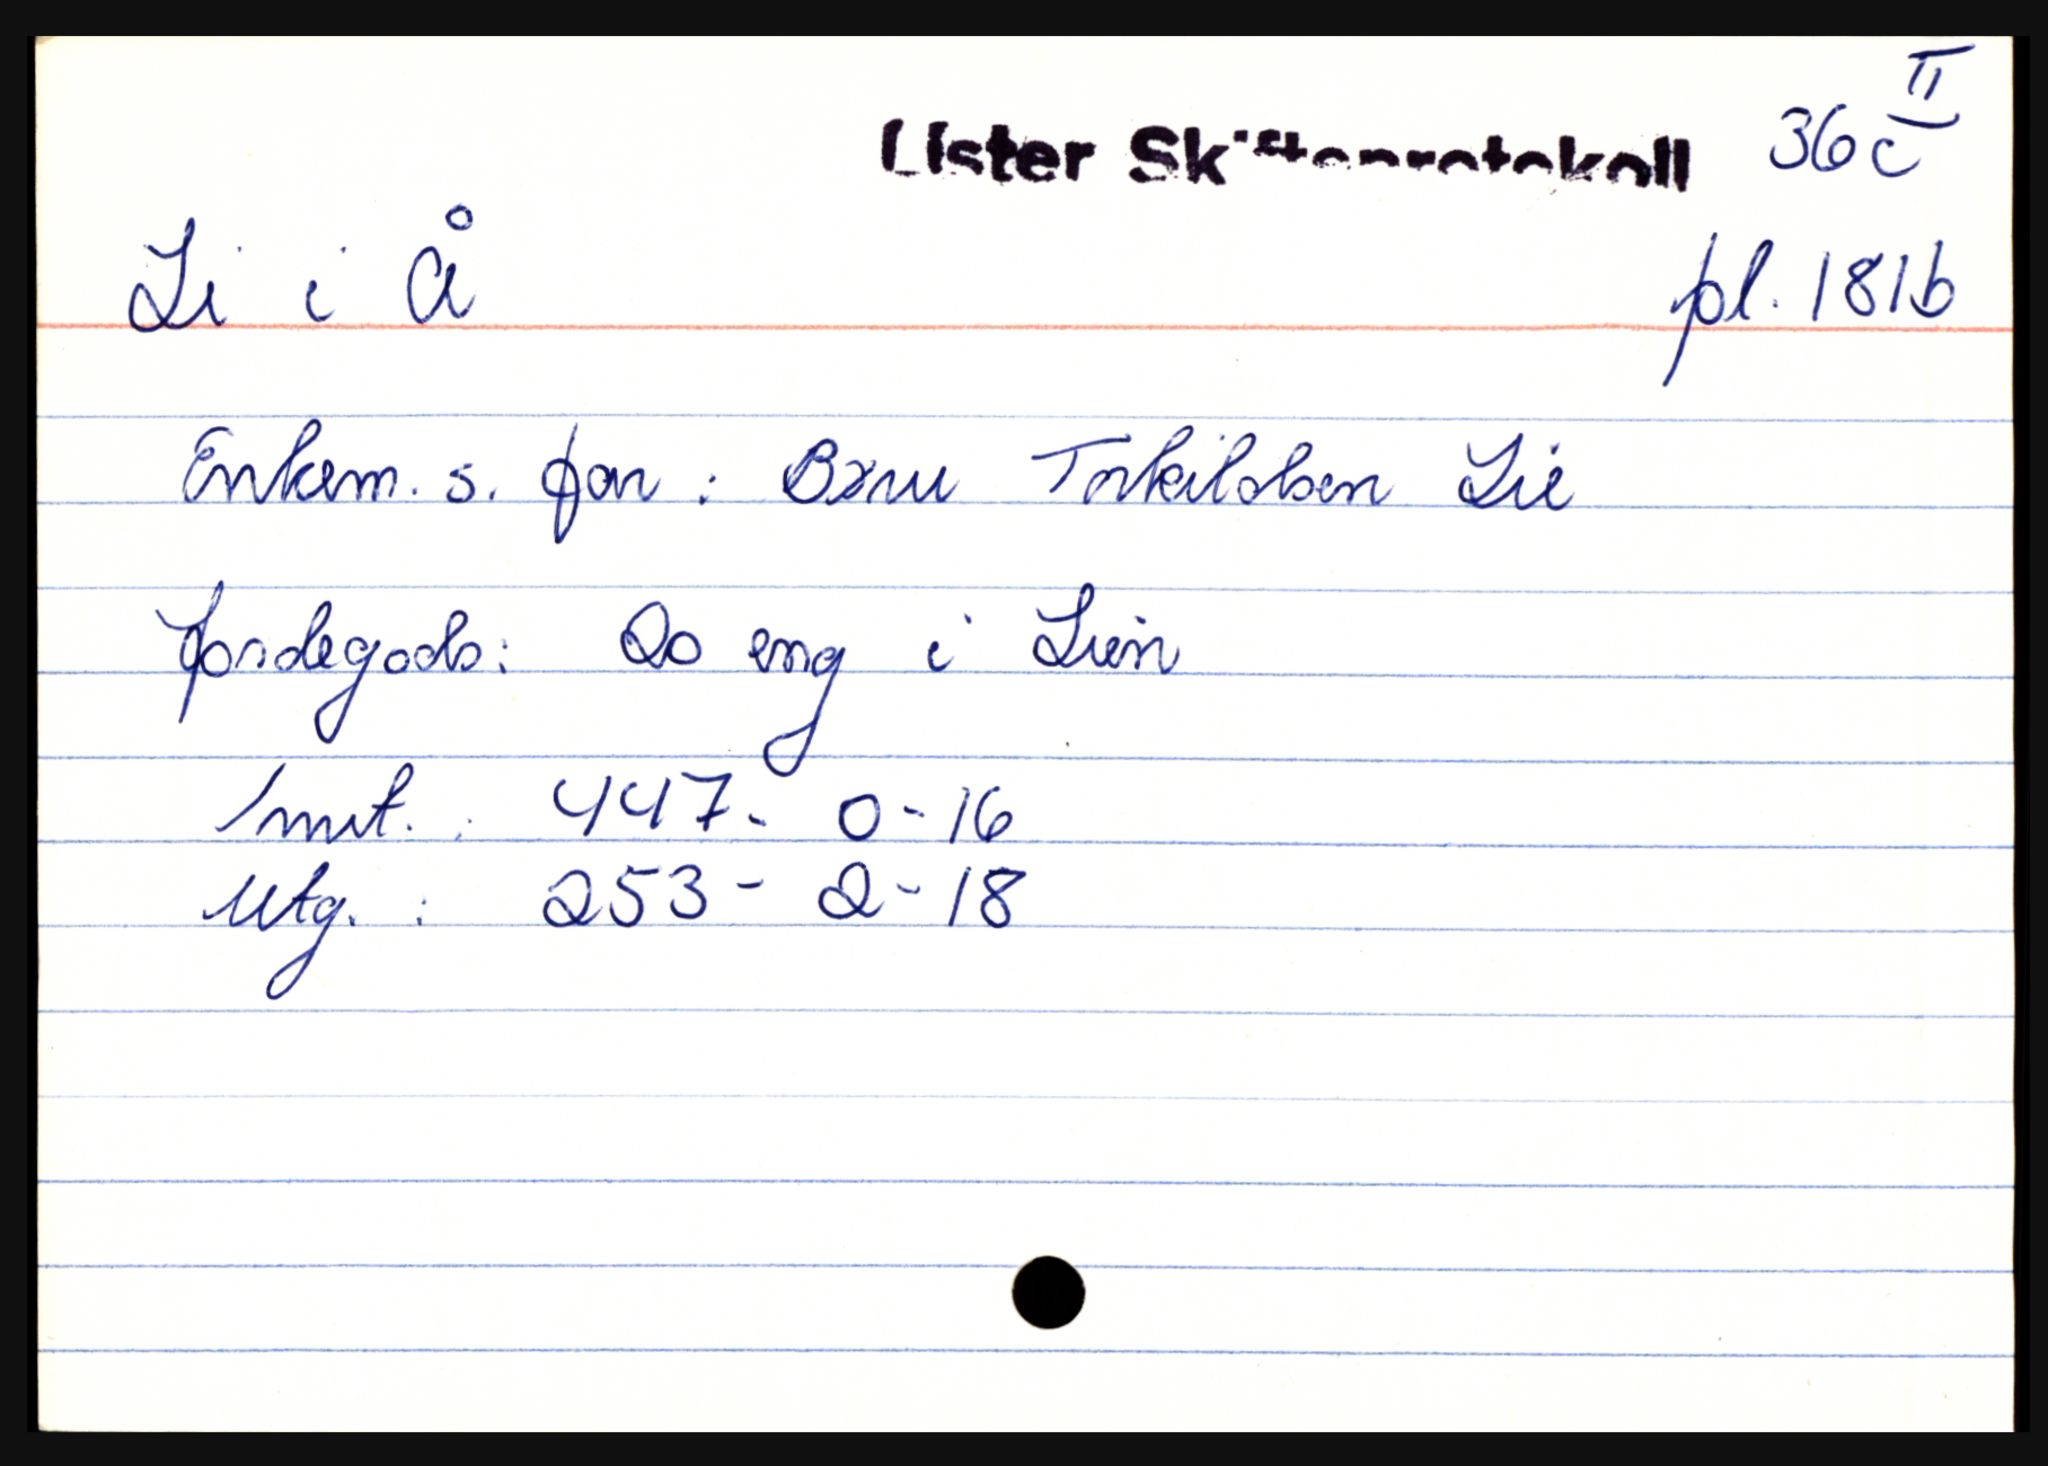 Lister Skifteprotokoll 36c II
Li i Å pl. 181b
Enkem. s. far: Børu Torkildsen Lie
Jordegods: 20 eng i Lien
Innt. : 447 - 0 - 16
Utg. : 253 - 2 - 18